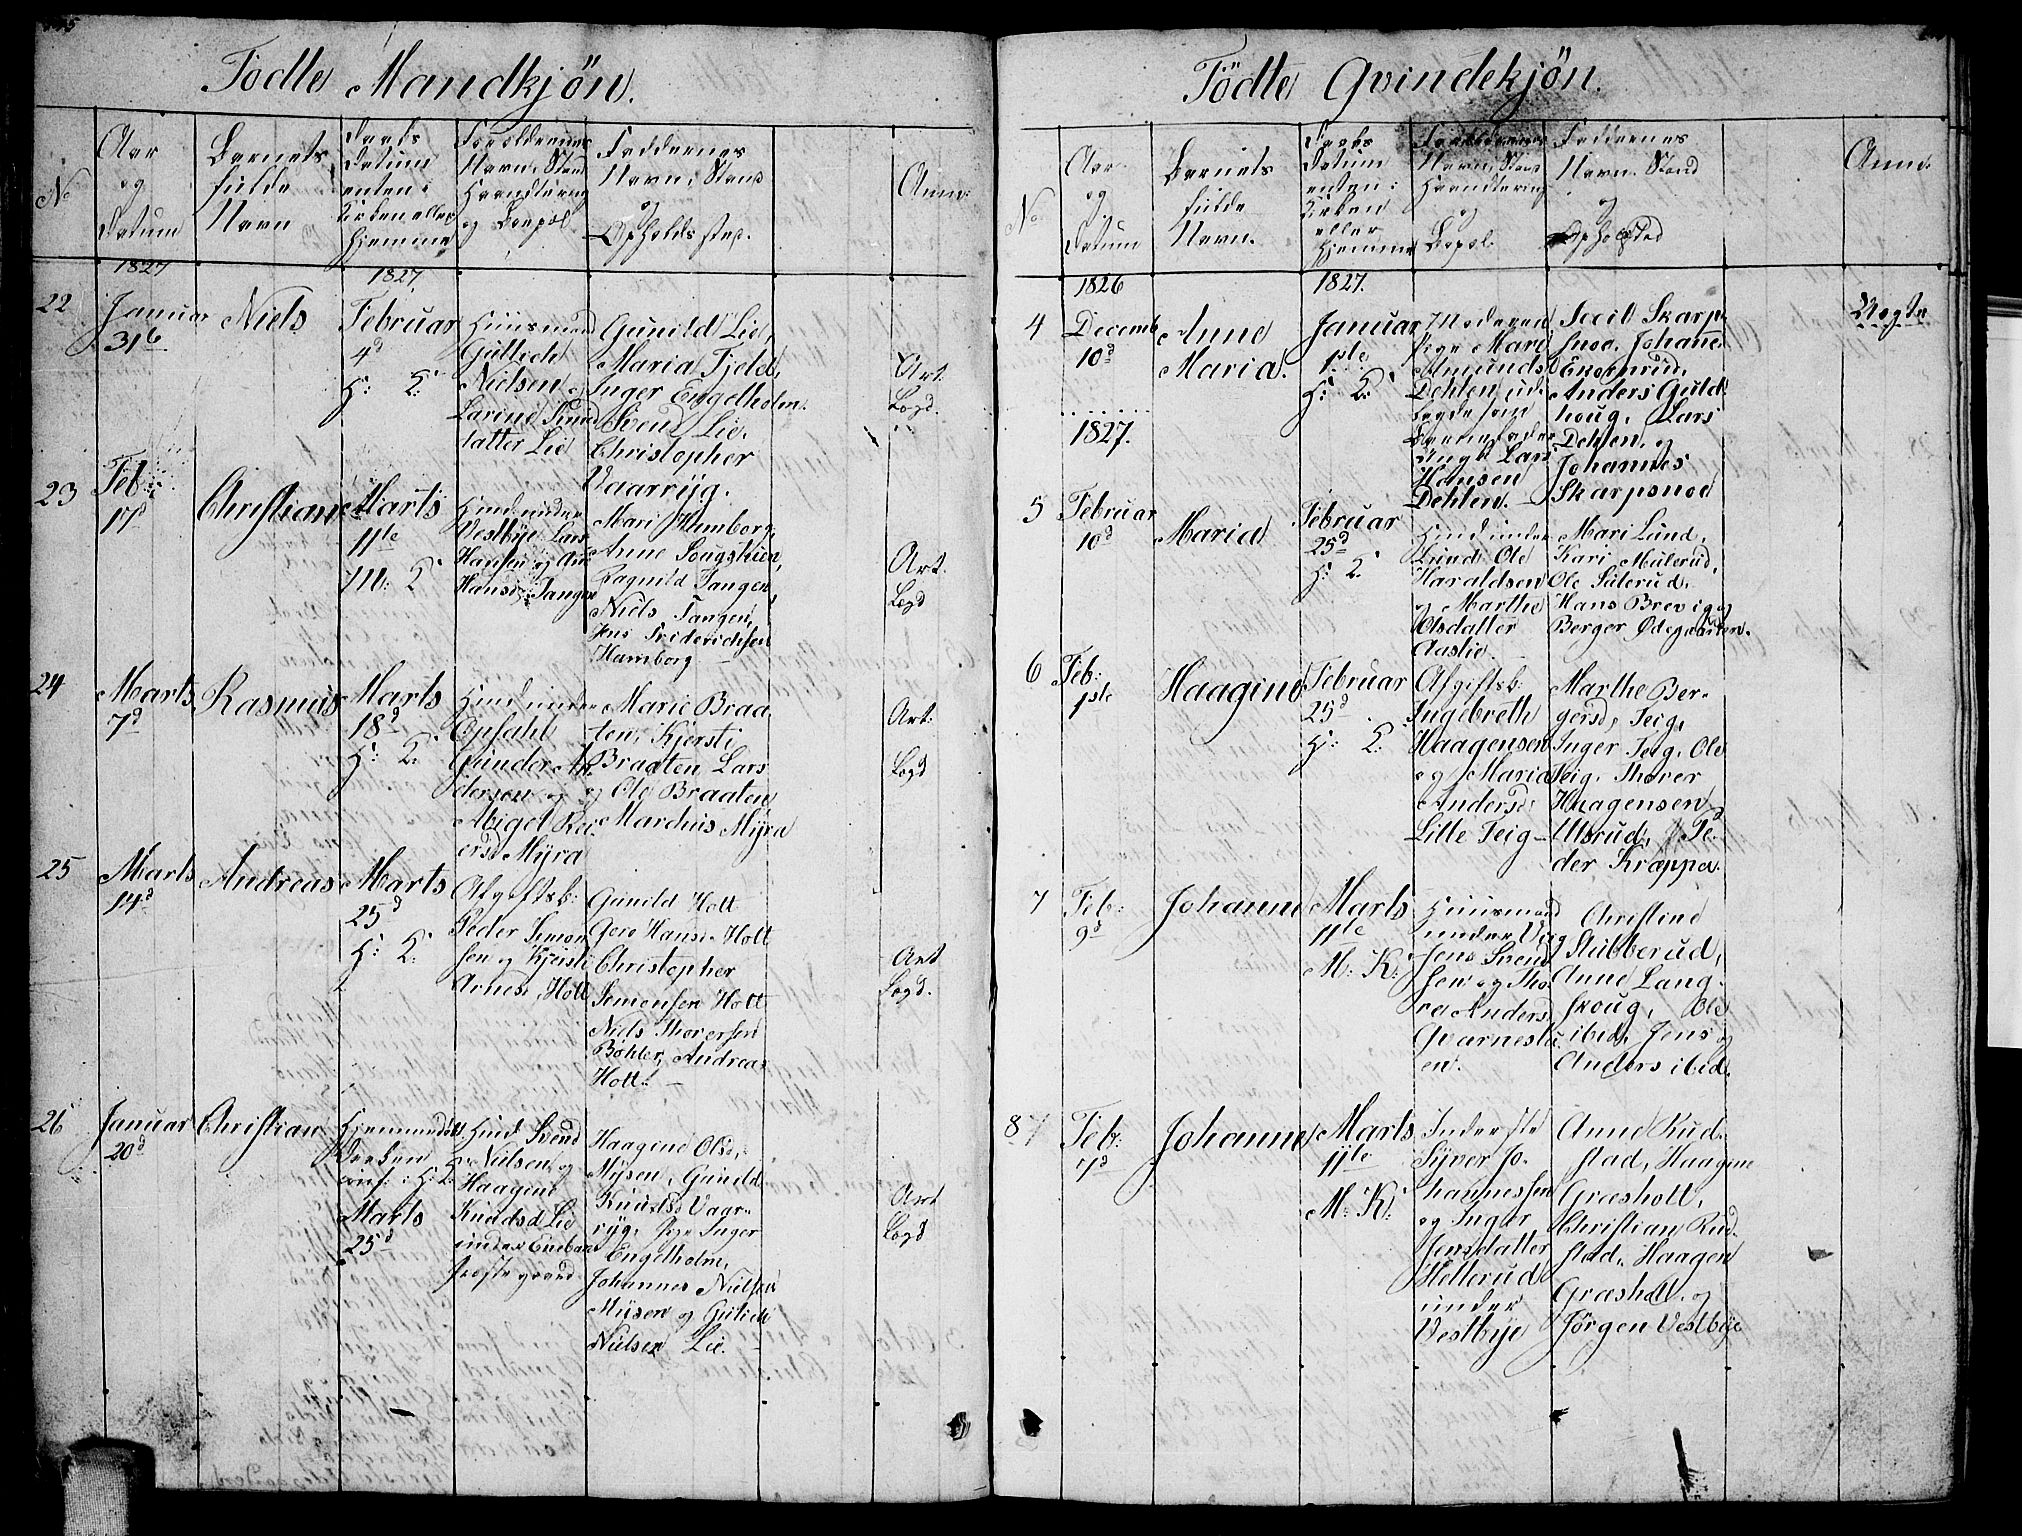 Födte Mandkjön.
No
Aar
og
Datum
Barnets
fulde
Navn
Daabs
Datum
enten i
Kirken eller
hjemme
Forældrenes
Navn, Stand
Haandtering
og Boepæl
Faddernes
Navn, Stand
og
Opholdssted.
Anm:
1827
1827.
22
Januar
31te
Niels
Februar
4d
H: K:
Huusmand
Gullich
Nielsen og
Larine Knud
datter Lie
Gunild Lie,
Maria Fjeld,
Inger Engelholm.
Svend Lie.
Christopher
Vaarryg.
Art.
Logd.
23
Feb:
17d
Christian
Marts
11te
M: K:
Huusd under
Vestbye Lars
Hansen og Ane
Hansd. Tangen
Mari Humborg,
Anne Songstkien,
Ragnild Tangen,
Niels Tangen,
Jens Friderichsen
Hamborg
Art.
Logd
24
Marts
7d
Rasmus
Marts
18d
H: K:
Huusd under
Opsahl
Gunder An
dersen og
Abigel Rei
ersd Myra
Marie Braa
ten, Kjersti
Braaten Lars
og Ole Braaten
Marchus Myra
Art:
Logd
25
Marts
14d
Andreas
Marts
25d
H: K:
Afgiftsb:
Peder Simon
sen og Kjersti
Arnesd. Holt
Gunild Holt
Gero Hansd. Holt
Christopher
Simonsen Holt
Niels Thorersen
Böhler, Andreas
Holt. —
Art
Logd.
26
Januar
20d
Christian
Hjemmedöbt
Daaben
conf: i H: K:
Marts
25d
Huusd Svend
Nielsen og
Haagine
Knudsd Lie
under Eneba
Præstegaard
Haagine Olsd.
Mysen, Gunild
Knudsd Vaar-
ryg, Pige Inger
Engelholm,
Johannes Nielsen
Mysen og Gulich
Nielsen Lie. —
Art
Logd
Födte Qvindekjön.
No
Aar
og
Datum
Barnets
fulde
Navn.
Daabs
Datum
enten i
Kirken
eller
hjemme
Forældrenes
Navn, Stand
Haandtering
og
Boepæl.
Faddernes
Navn. Stand
og
Opholdsted
Anm:
1826
1827.
4
Decemb
10d
Anne
Maria.
Januar
1ste
H: K:
Moderen
Pige Mari
Amundsd
Dehlen ud-
lagde som
Barnefader
Ungk Lars
Hansen
Dehlen. —
Sicil Skarp
snoe. Johane
Ekornrud,
Anders Guld
houg, Lars
Dehlen, og
Johannes
Skarpsnoe
Uægte
1827.
5
Februar
10d
Maria
Februar
25d
H: K:
Huusd under
Lund Ole
Haraldsen
og Marthe
Olsdatter
Aaslie. —
Mari Lund,
Kari Mulerud,
Ole Sulerud,
Hans Brevig og
Berger Ødegaarden.
6
Feb:
1ste
Haagine
Februar
25d
H: K:
Afgiftsb:
Ingebreth
Haagensen
og Maria
Andersd.
Lille Teig —
Marthe Ber-
gersd, Teig,
Inger Teig, Ole
Teig, Thorer
Haagensen
Ulsrud, Pe-
der Kræppa.
7
Feb:
9d
Johanne
Marts
11te
M: K:
Huusmand
under Vig
Jens Svend
sen og Tho-
re Anders
Qvarnestu
en.
Christine
Stubberud,
Anne Lang-
skoug, Ole
ibid, Jens og
Anders ibid.
8
Feb:
7d
Johanne
Marts
11te
M: K:
Inderste
Syver Jo-
hannessen
og Inger
Jensdatter
Hellerud
under
Vestbye
Anne Rud-
stad, Haagine
Græsholt,
Christian Rud-
stad, Haagen
Græsholt. og
Jörgen Vestbye